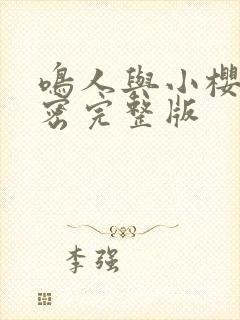 鳴人與小櫻
密完整版
李強